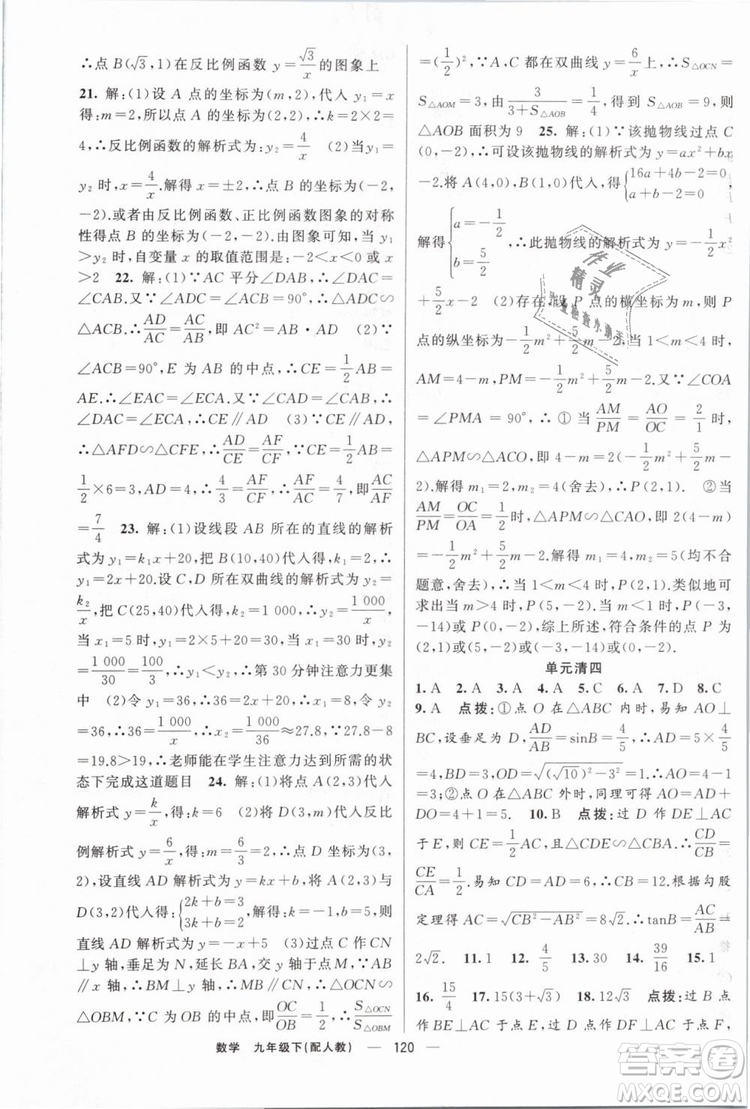 ∴点 B(√3,1)在反比例函数 y=√3/x 的图象上
21. 解:(1)设 A 点的坐标为(m,2),代入 y₁=x
得:m=2,所以点 A 的坐标为(2,2),∴k=2×2=
4 ∴反比例函数的解析式为 y₂=4/x (2)当 y₁=
y₂ 时,x=4/x.解得 x=±2,∴点 B 的坐标为(-2,
-2).或者由反比例函数、正比例函数图象的对称
性得点 B 的坐标为(-2,-2).由图象可知,当 y₁
>y₂ 时,自变量 x 的取值范围是:-2<x<0 或 x
>2 22. 解:(1)∵AC 平分∠DAB,∴∠DAC=
∠CAB.又∵∠ADC=∠ACB=90°,∴△DAC∽
△CAB.∴AD/AC=AC/AB,即 AC²=AB·AD (2)∵
∠ACB=90°,E 为 AB 的中点,∴CE=1/2AB=
AE.∴∠EAC=∠ECA.又∵∠CAD=∠CAB,
∴∠DAC=∠ECA,∴CE∥AD (3)∵CE∥AD,
∴△AFD∽△CFE,∴AD/CE=AF/CF.∵CE=1/2AB=
1/2×6=3,AD=4,∴4/3=AF/CF,∴CF/AF=3/4.∴AC/AF=
7/4 23. 解:(1)设线段 AB 所在的直线的解析
式为 y₁=k₁x+20,把 B(10,40)代入得,k₁=2,
∴y₁=2x+20.设 C,D 所在双曲线的解析式为 y₂
=k₂/x,把 C(25,40)代入得,k₂=1 000,∴y₂=1 000/x,
当 x₁=5 时,y₁=2×5+20=30,当 x₂=30 时,y₂
=1 000/30=100/3,∴y₁<y₂,∴第 30 分钟注意力更集
中 (2)令 y₁=36,∴36=2x+20,∴x₁=8,令 y₂
=36,∴36=1 000/x,∴x₂=1 000/36≈27.8,∵27.8-8
=19.8>19,∴老师能在学生注意力达到所需的状
态下完成这道题目 24. 解:(1)将点 A(2,3)代入
解析式 y=k/x,得:k=6 (2)将 D(3,m)代入反比
例解析式 y=6/x,得:m=6/3=2,∴点 D 坐标为(3,
2),设直线 AD 解析式为 y=kx+b,将 A(2,3)与
D(3,2)代入得:{2k+b=3 3k+b=2,解得:k=-1,b=5.则
直线 AD 解析式为 y=-x+5 (3)过点 C 作 CN
⊥y 轴,垂足为 N,延长 BA,交 y 轴于点 M,∵AB
∥x 轴,∴BM⊥y 轴,∴MB∥CN,∴△OCN∽
△OBM,∵C 为 OB 的中点,即OC/OB=1/2,∴S△OCN/S△OBM
=(1/2)²,∵A,C 都在双曲线 y=6/x上,∴S△OCN=
S△AOM=3,由3/(3+S△AOB)=1/4,得到 S△AOB=9,则
△AOB 面积为 9 25. 解:(1)∵该抛物线过点 C
(0,-2),∴可设该抛物线的解析式为 y=ax²+bx
-2.将 A(4,0),B(1,0)代入,得{16a+4b-2=0 a+b-2=0,
解得{a=-1/2 b=5/2,∴此抛物线的解析式为 y=-1/2x²
+5/2x-2 (2)存在,设 P 点的横坐标为 m,则 P
点的纵坐标为-1/2m²+5/2m-2,当 1<m<4 时,
AM=4-m,PM=-1/2m²+5/2m-2.又∵∠COA
=∠PMA=90°,∴①当AM/PM=AO/OC=2/1时,
△APM∽△ACO,即 4-m=2(-1/2m²+5/2m-
2).解得 m₁=2,m₂=4(舍去),∴P(2,1). ②当
AM/PM=OC/OA=1/2时,△APM∽△CAO,即 2(4-m)=
-1/2m²+5/2m-2.解得 m₁=4,m₂=5(均不合
题意,舍去),∴当 1<m<4 时,P(2,1).类似地可
求出当 m>4 时,P(5,-2),当 m<1 时,P(-3,
-14)或 P(0,-2),综上所述,符合条件的点 P 为
(2,1)或(5,-2)或(-3,-14)或(0,-2)
单元清四
1. A 2. A 3. A 4. A 5. C 6. A 7. D 8. C
9. A 点拨:①点 O 在△ABC 内时,易知 AO⊥
BC,设垂足为 D,AD/AB=sinB=4/5,∴AD=4,∴
DO=√((√10)²-3²)=1,∴AO=AD-DO=4-1
=3;②点 O 在△ABC 外时,同理可求得 AD+
DO=4+1=5. 10. B 点拨:过 D 作 DE⊥AC
于 E,则 CE=1/2AC,由△CDE∽△CBA 得CD/CB=
CE/CA=1/2.易知 CB=2CD=2×3=6.根据勾股
定理得 AC=√(CB²-AB²)=4√2,∴tanB=AC/AB=
2√2. 11. 1 12. 4/5 13. 30 14. 39/16 15. 1
16. 15/4 17. 15(3+√3) 18. 12√3 点拨:过 B
作 BE⊥AC 于点 E,过 D 作 DF⊥AC 于点 F,
数学 九年级下(配人教) — 120 —
作业
精灵